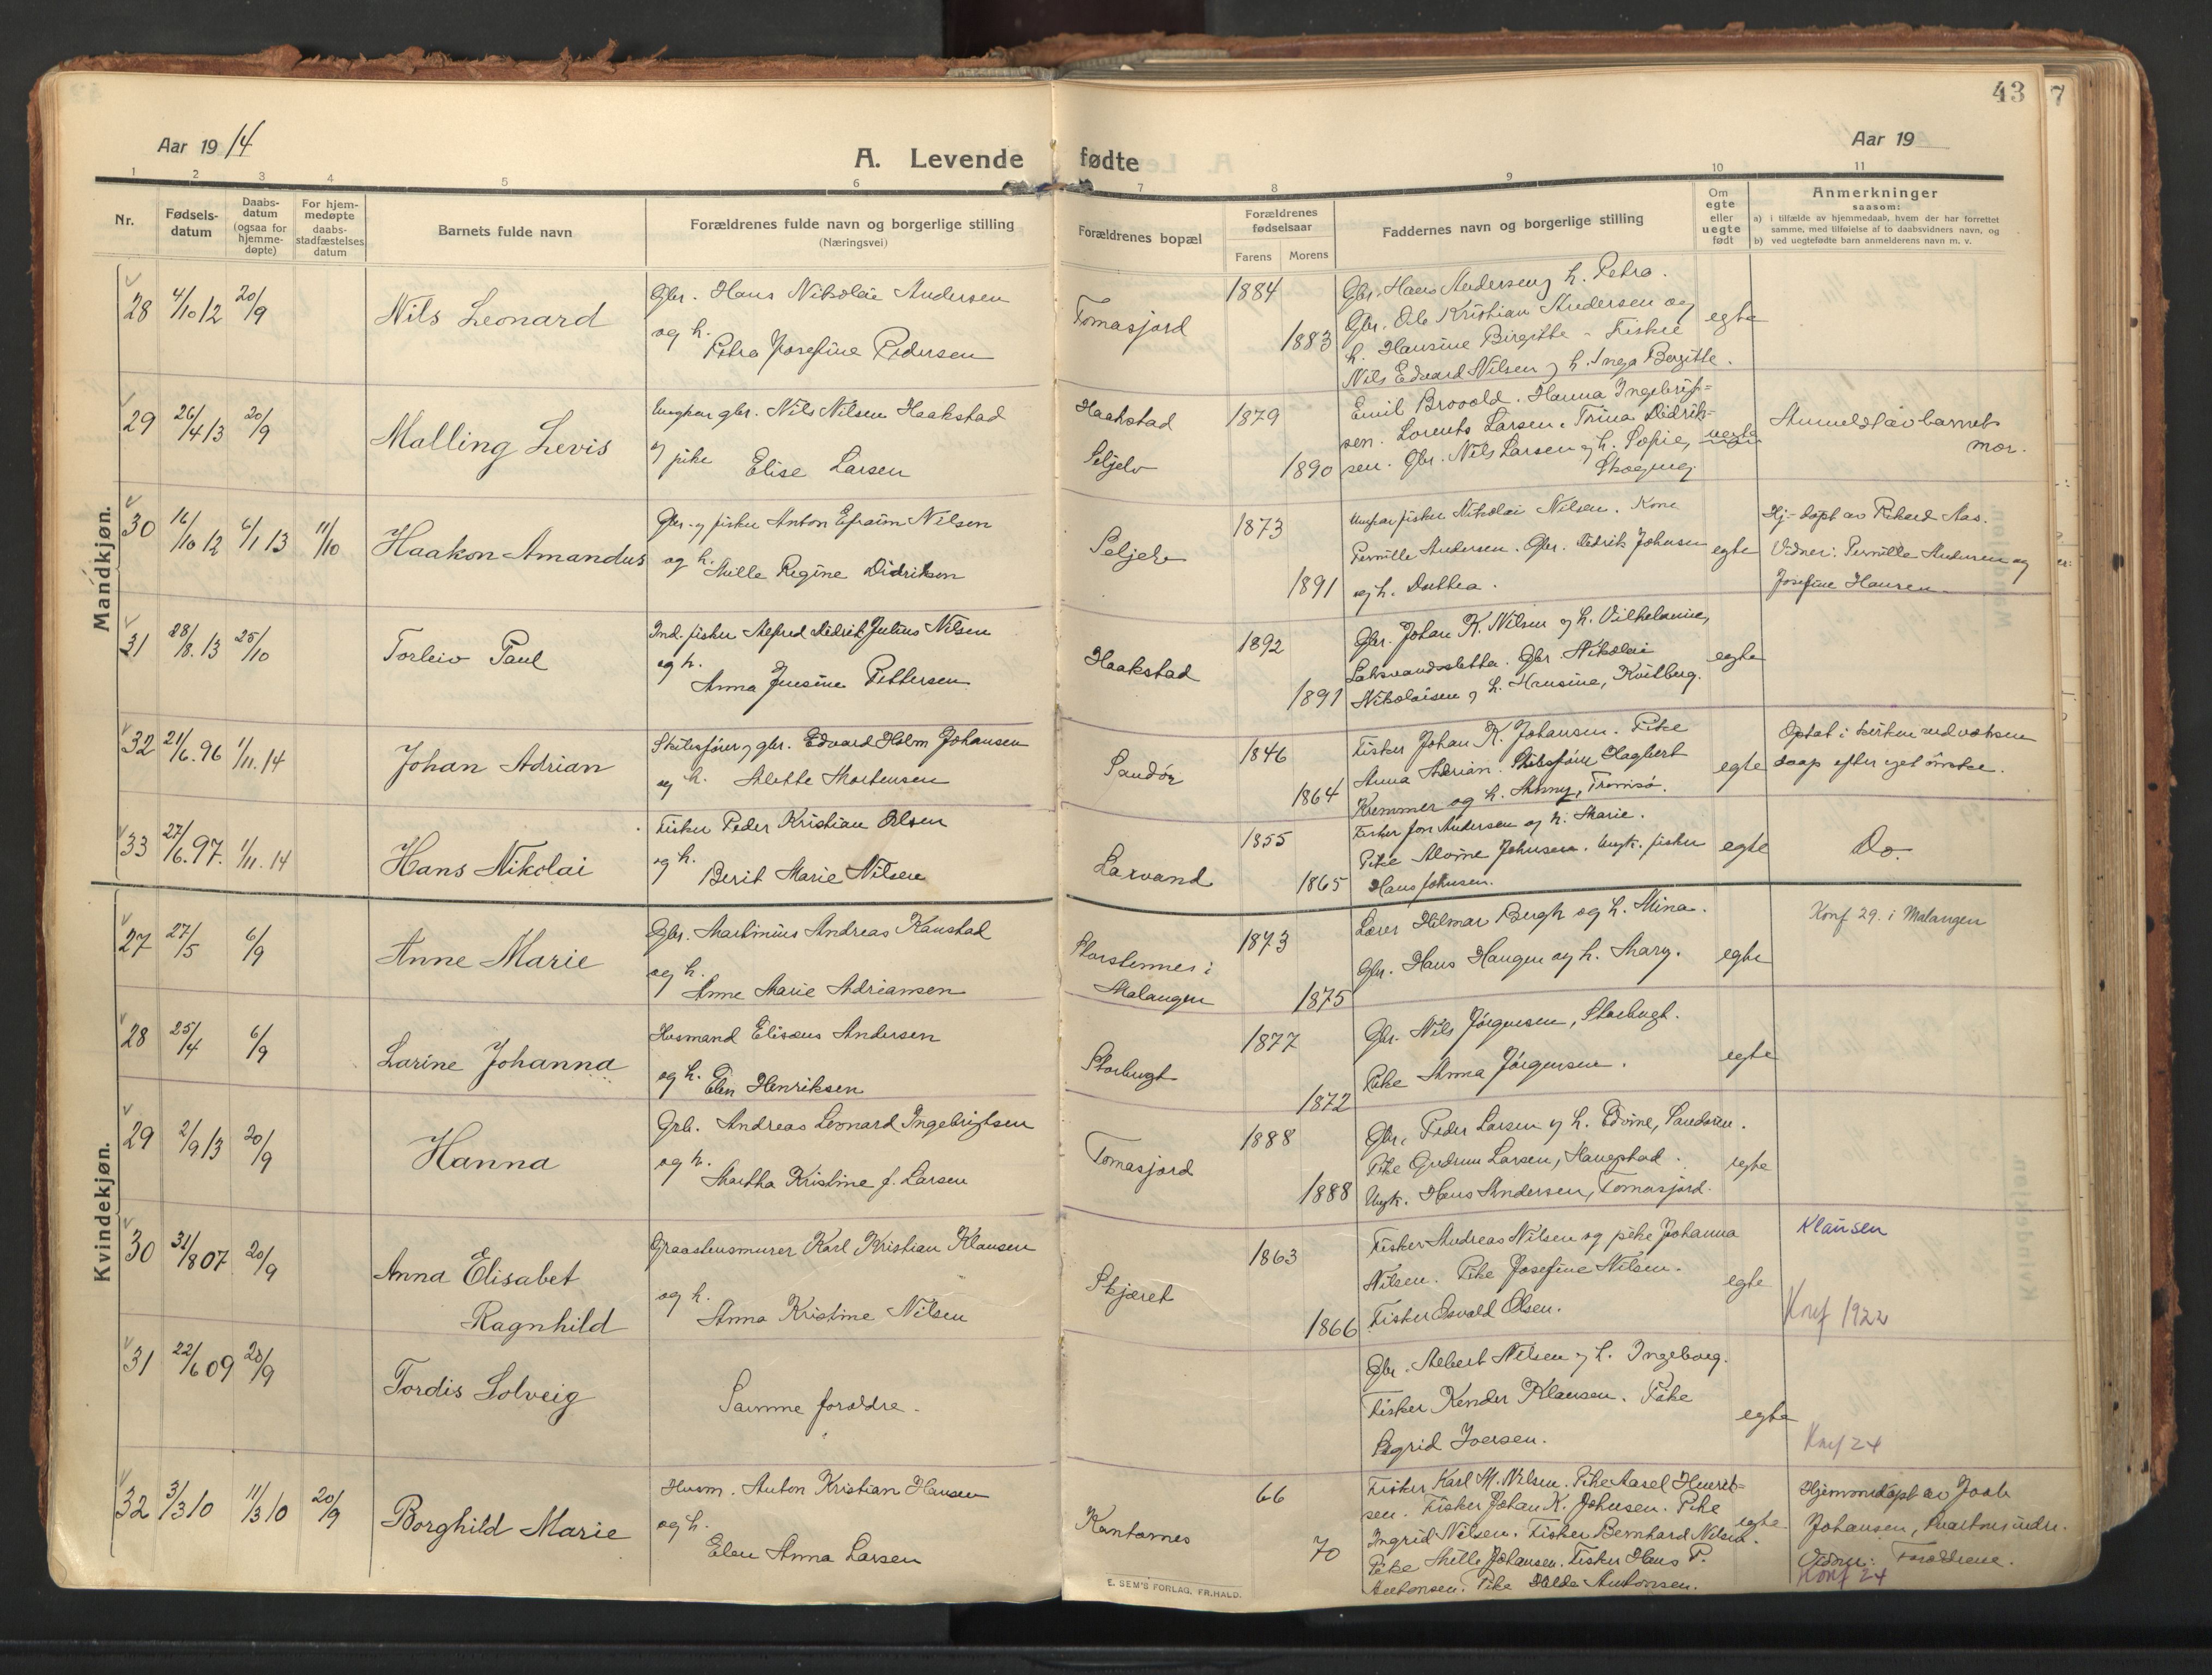 43
7
Aar 1914
Aar 19
A. Levende fødte
1 2 3 4 5 6 7 8 9 10 11
Nr.
Fødsels-
datum
Daabs-
datum
(ogsaa for
hjemme-
døpte)
For hjem-
medøpte
daabs-
stadfæstelses
datum
Barnets fulde navn
Forældrenes fulde navn og borgerlige stilling
(Næringsvei)
Forældrenes bopæl
Forældrenes
fødselsaar
Farens Morens
Faddernes navn og borgerlige stilling
Om
egte
eller
uegte
født
Anmerkninger
saasom:
a) i tilfælde av hjemmedaab, hvem der har forrettet
samme, med tilføielse af to daabsvidners navn, og
b) ved uegtefødte barn anmelderens navn m. v.
Mandkjøn.
28 4/10 12 20/9
Nils Leonard
Gbr. Hans Nikolai Andersen
og h.
Petra Josefine Pedersen
Tomasjord
1884
1883
Gbr. Hans Andersen og h. Petra.
Gbr. Ole Kristian Andersen og
h. Hansine Birgitte - Fisker
Nils Edvard Nilsen og h. Inga Bergitte.
egte
29 26/4 13 20/9
Malling Levis
Ungkar gbr. Nils Nilsen Haakstad
og pike
Elise Larsen
Haakstad
Seljelv
1879
1890
Emil Brovold. Hanna Ingebrigt-
sen. Lorents Larsen. Trina Didrik-
sen. Gbr. Nils Larsen og h. Sofie,
Skogeng
uegte
Anmeldt av barnets
mor.
30 16/10 12 6/1 13 11/10
Haakon Amandus
Gbr. og fisker Anton Efraim Nilsen
og h.
Mille Regine Didriksen
Seljelv
1873
1891
Ungkar fisker Nikolai Nilsen. Kone
Pernille Andersen. Gbr. Didrik Johnsen
og h. Dorthea.
egte
Hj.-døpt av Rikard Aas.
Vidner: Pernille Andersen og
Josefine Hansen
31 28/8. 13 25/10
Torleiv Paul
Ind. fisker Alfred Didrik Julius Nilsen
og h.
Anna Jensine Pettersen
Haakstad
1892
1891
Gbr. Johan K. Nilsen og h. Vilhelmine,
Laksvandsletta. Gbr. Nikolai
Nikolaisen og h. Hansine, Kvitberg.
egte
32 21/6. 96 1/11. 14
Johan Adrian
Skibsfører og gbr. Edvard Holm Johansen
og h. Alette Mortensen
Sandør
1846
1864
Fisker Johan K. Johansen. Pike
Anna Adrian. Skibsfører Hagbart
Kremmer og h. Anny, Tromsø.
egte
Optat i kirken ved voksen
daap efter eget ønske.
33 27/6. 97. 1/11. 14
Hans Nikolai
Fisker Peder Kristian Olsen
og h.
Berit Marie Nilsen
Laxvand
1855
1865
Fisker Jon Andersen og h. Marie.
Pike Alvine Johnsen. Ungk. fisker
Hans Johnsen.
egte
Do.
Kvindekjøn.
27 27/5 6/9
Anne Marie
Gbr. Martinius Andreas Kanstad
og h.
Anne Marie Adriansen
Storstennes i
Malangen
1873
1875
Lærer Hilmar Bergh og h. Mina.
Gbr. Hans Haugen og h. Mary.
egte
Konf 29. i Malangen
28 25/4 6/9
Larine Johanna
Husmand Elisæus Andersen
og h.
Elen Henriksen
Storbugt
1877
1872
Gbr. Nils Jørgensen, Storbugt.
Pike Anna Jørgensen.
egte
29 2/9 13 20/9
Hanna
Grb. Andreas Leonard Ingebrigtsen
og h.
Martha Kristine f. Larsen
Tomasjord
1888
1888
Gbr. Peder Larsen og h. Edvine, Sandøren.
Pike Gudrun Larsen, Haugstad.
Ungk. Hans Andersen, Tomasjord.
egte
30 31/8 07 20/9
Anna Elisabet
Ragnhild
Graastensmurer Karl Kristian Klausen
og h.
Anna Kristine Nilsen
Skjæret
1863
1866
Fisker Andreas Nilsen og pike Johanna
Nilsen. Pike Josefine Nilsen.
Fisker Osvald Olsen.
egte
Klausen
Konf 1922
31 22/6 09 20/9
Tordis Solveig
Samme forældre.
Gbr. Albert Nilsen og h. Ingeborg.
Fisker Kender Klausen. Pike
Sigrid Iversen.
egte
Konf 24
32 3/3 10 11/3 10 20/9
Borghild Marie
Husm. Anton Kristian Hansen
og h.
Elen Anna Larsen
Kantornes
66
70
Fisker Karl M. Nilsen. Pike Aasel Henrik-
sen. Fisker Johan K. Johnsen. Pike
Ingrid Nilsen. Fisker Bernhard Nilsen.
Pike Mille Johansen. Fisker Hans P.
Antonsen. Pike Halda Antonsen.
egte
Hjemmedøpt av Joak
Johansen,
Vidner: Forældrene.
Konf 24
E. SEM'S FORLAG, FR.HALD.